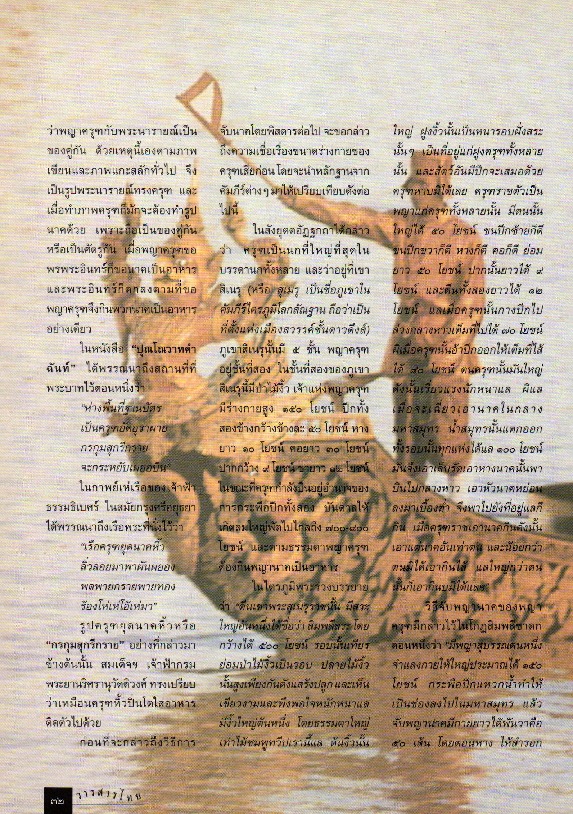 ว่าพญาครุฑกับพระนารายณ์เป็น
ของคู่กัน ด้วยเหตุนี้เองตามภาพ
เขียนและภาพแกะสลักทั่วไป จึง
เป็นรูปพระนารายณ์ทรงครุฑ และ
เมื่อทำภาพครุฑก็มักจะต้องทำรูป
นาคด้วย เพราะถือเป็นของคู่กัน
หรือเป็นศัตรูกัน เมื่อพญาครุฑขอ
พรพระอินทร์ก็ขอนาคเป็นอาหาร
และพระอินทร์ก็ตกลงตามที่ขอ
พญาครุฑจึงกินพวกนาคเป็นอาหาร
อย่างเดียว
ในหนังสือ “ปุณโณวาทคำ
ฉันท์” ได้พรรณาถึงสถานที่ที่
พระบาทไว้ตอนหนึ่งว่า
“ห่างพื้นที่ฐานบัตร
เป็นครุฑอัดอุราผาย
กรกุมภุชกรีกราย
จะกระหยับเผยอบิน”
ในกาพย์เห่เรือของ เจ้าฟ้า
ธรรมธิเบศร์ ในสมัยกรุงศรีอยุธยา
ได้พรรณนาถึงเรือพระที่นั่งไว้ว่า
“เรือครุฑยุดนาคหิ้ว
ลิ่วลอยมาพาผันผยอง
พลพายกรายพายทอง
ร้องโห่เห่โอ้เห่มา”
รูปครุฑยุดนาคหิ้วหรือ
“กรกุมภุชกรีกราย” อย่างที่กล่าวมา
ข้างต้นนั้น สมเด็จฯ เจ้าฟ้ากรม
พระยานริศรานุวัดติวงศ์ ทรงเปรียบ
ว่าเหมือนครุฑหิ้วปิ่นโตใส่อาหาร
ติดตัวไปด้วย
ก่อนที่จะกล่าวถึงวิธีการ
จับนาคโดยพิสดารต่อไป จะขอกล่าว
ถึงความเชื่อเรื่องขนาดร่างกายของ
ครุฑเสียก่อน โดยจะนำหลักฐานจาก
คัมภีร์ต่างๆ มาให้เปรียบเทียบดังต่อ
ไปนี้
ในสังยุตตอัฏฐกถาได้กล่าว
ว่า ครุฑเป็นนกที่ใหญ่ที่สุดใน
บรรดานกทั้งหลาย และว่าอยู่ที่เขา
สิเนรุ (หรือ สุเมรุ เป็นชื่อภูเขาใน
คัมภีร์ไตรภูมิโลกสัณฐาน ถือว่าเป็น
ที่ตั้งแห่งเมืองสวรรค์ชั้นดาวดึงส์)
ภูเขาสิเนรุนั้นมี ๕ ชั้น พญาครุฑ
อยู่ชั้นที่สอง ในชั้นที่สองของภูเขา
สิเนรุนี้มีป่าไม้งิ้ว เจ้าแห่งพญาครุฑ
มีร่างกายสูง ๑๕๐ โยชน์ ปีกทั้ง
สองข้างกว้างข้างละ ๕๐ โยชน์ หาง
ยาว ๖๐ โยชน์ คอยาว ๓๐ โยชน์
ปากกว้าง ๙ โยชน์ ขายาว ๑๒ โยชน์
ในขณะที่ครุฑกำลังบินอยู่อำนาจของ
การกระพือปีกทั้งสอง บันดาลให้
เกิดลมใหญ่พัดไปไกลถึง ๗๐๐-๘๐๐
โยชน์ และตามธรรมดาพญาครุฑ
ต้องกินพญานาคเป็นอาหาร
ในไตรภูมิพระร่วงบรรยาย
ว่า “ตีนเขาพระสุเมรุราชนั้น มีสระ
ใหญ่อันหนึ่งได้ชื่อว่า สิมพลีสระโดย
กว้างได้ ๕๐๐ โยชน์ รอบนั้นเทียร
ย่อมป่าไม้งิ้วเป็นรอบ ปลายไม้งิ้ว
นั้นสูงเพียงกันดังแสร้งปลูกและเห็น
เขียวงามและพึงพอใจหนักหนาแล
มีงิ้วใหญ่ต้นหนึ่ง โดยธรรมดาใหญ่
เท่าไม้ชมพูทวีปเรานี้แล ต้นงิ้วนั้น
ใหญ่ ฝูงงิ้วนั้นเป็นหนารอบฝั่งสระ
นั้นๆ เป็นที่อยู่แก่ฝูงครุฑทั้งหลาย
นั้น และสัตว์อันมีปีกจะเสมอด้วย
ครุฑหาบมิได้เลย ครุฑราชตัวเป็น
พญาแก่ครุฑทั้งหลายนั้น มีตนนั้น
ใหญ่ได้ ๕๐ โยชน์ ขนปีกซ้ายก็ดี
ขนปีกขวาก็ดี หางก็ดี คอก็ดี ย่อม
ยาว ๕๐ โยชน์ ปากนั้นยาวได้ ๙
โยชน์ และตีนทั้งสองยาวได้ ๑๒
โยชน์ แลเมื่อครุฑนั้นกางปีกไป
ล่วงกลางหาวเต็มที่ไปได้ ๗๐ โยชน์
ผิเมื่อครุฑนั้นอ้าปีกออกให้เต็มที่ไส้
ได้ ๘๐ โยชน์ ตนครุฑนั้นมันใหญ่
ดังนั้นเรี่ยวแรงนักหนาแล ผิแล
เมื่อจะเฉี่ยวเอานาคในกลาง
มหาสมุทร น้ำสมุทรนั้นแตกออก
ทั้งรอบนั้นทุกแห่งได้แล ๑๐๐ โยชน์
มันจึงเอาเล็บรัดเอาหางนาคนั้นพา
บินไปกลางหาว เอาหัวนาคหย่อน
ลงมาเบื้องต่ำ จึงพาไปยังที่อยู่แลก็
กิน เมื่อครุฑราชเอานาคกินดังนั้น
เอาแต่นาคอันเท่าตน และน้อยกว่า
ตนมิได้เอากินไส้ แลใหญ่กว่าตน
นั้นก็เอากินบมิได้แล”
วิธีจับพญานาคของพญา
ครุฑมีกล่าวไว้ในโกฏสิมพลีชาดก
ตอนหนึ่งว่า “มีพญาสุบรรณตนหนึ่ง
จำแลงกายให้ใหญ่ประมาณได้ ๑๕๐
โยชน์ กระพือปีกแหวกน้ำทำให้
เป็นช่องลงไปในมหาสมุทร แล้ว
จับพญานาคมีกายยาวได้พันวาคือ
๕๐ เส้น โดยตอนหาง ให้สำรอก
๓๒
วารสารไทย